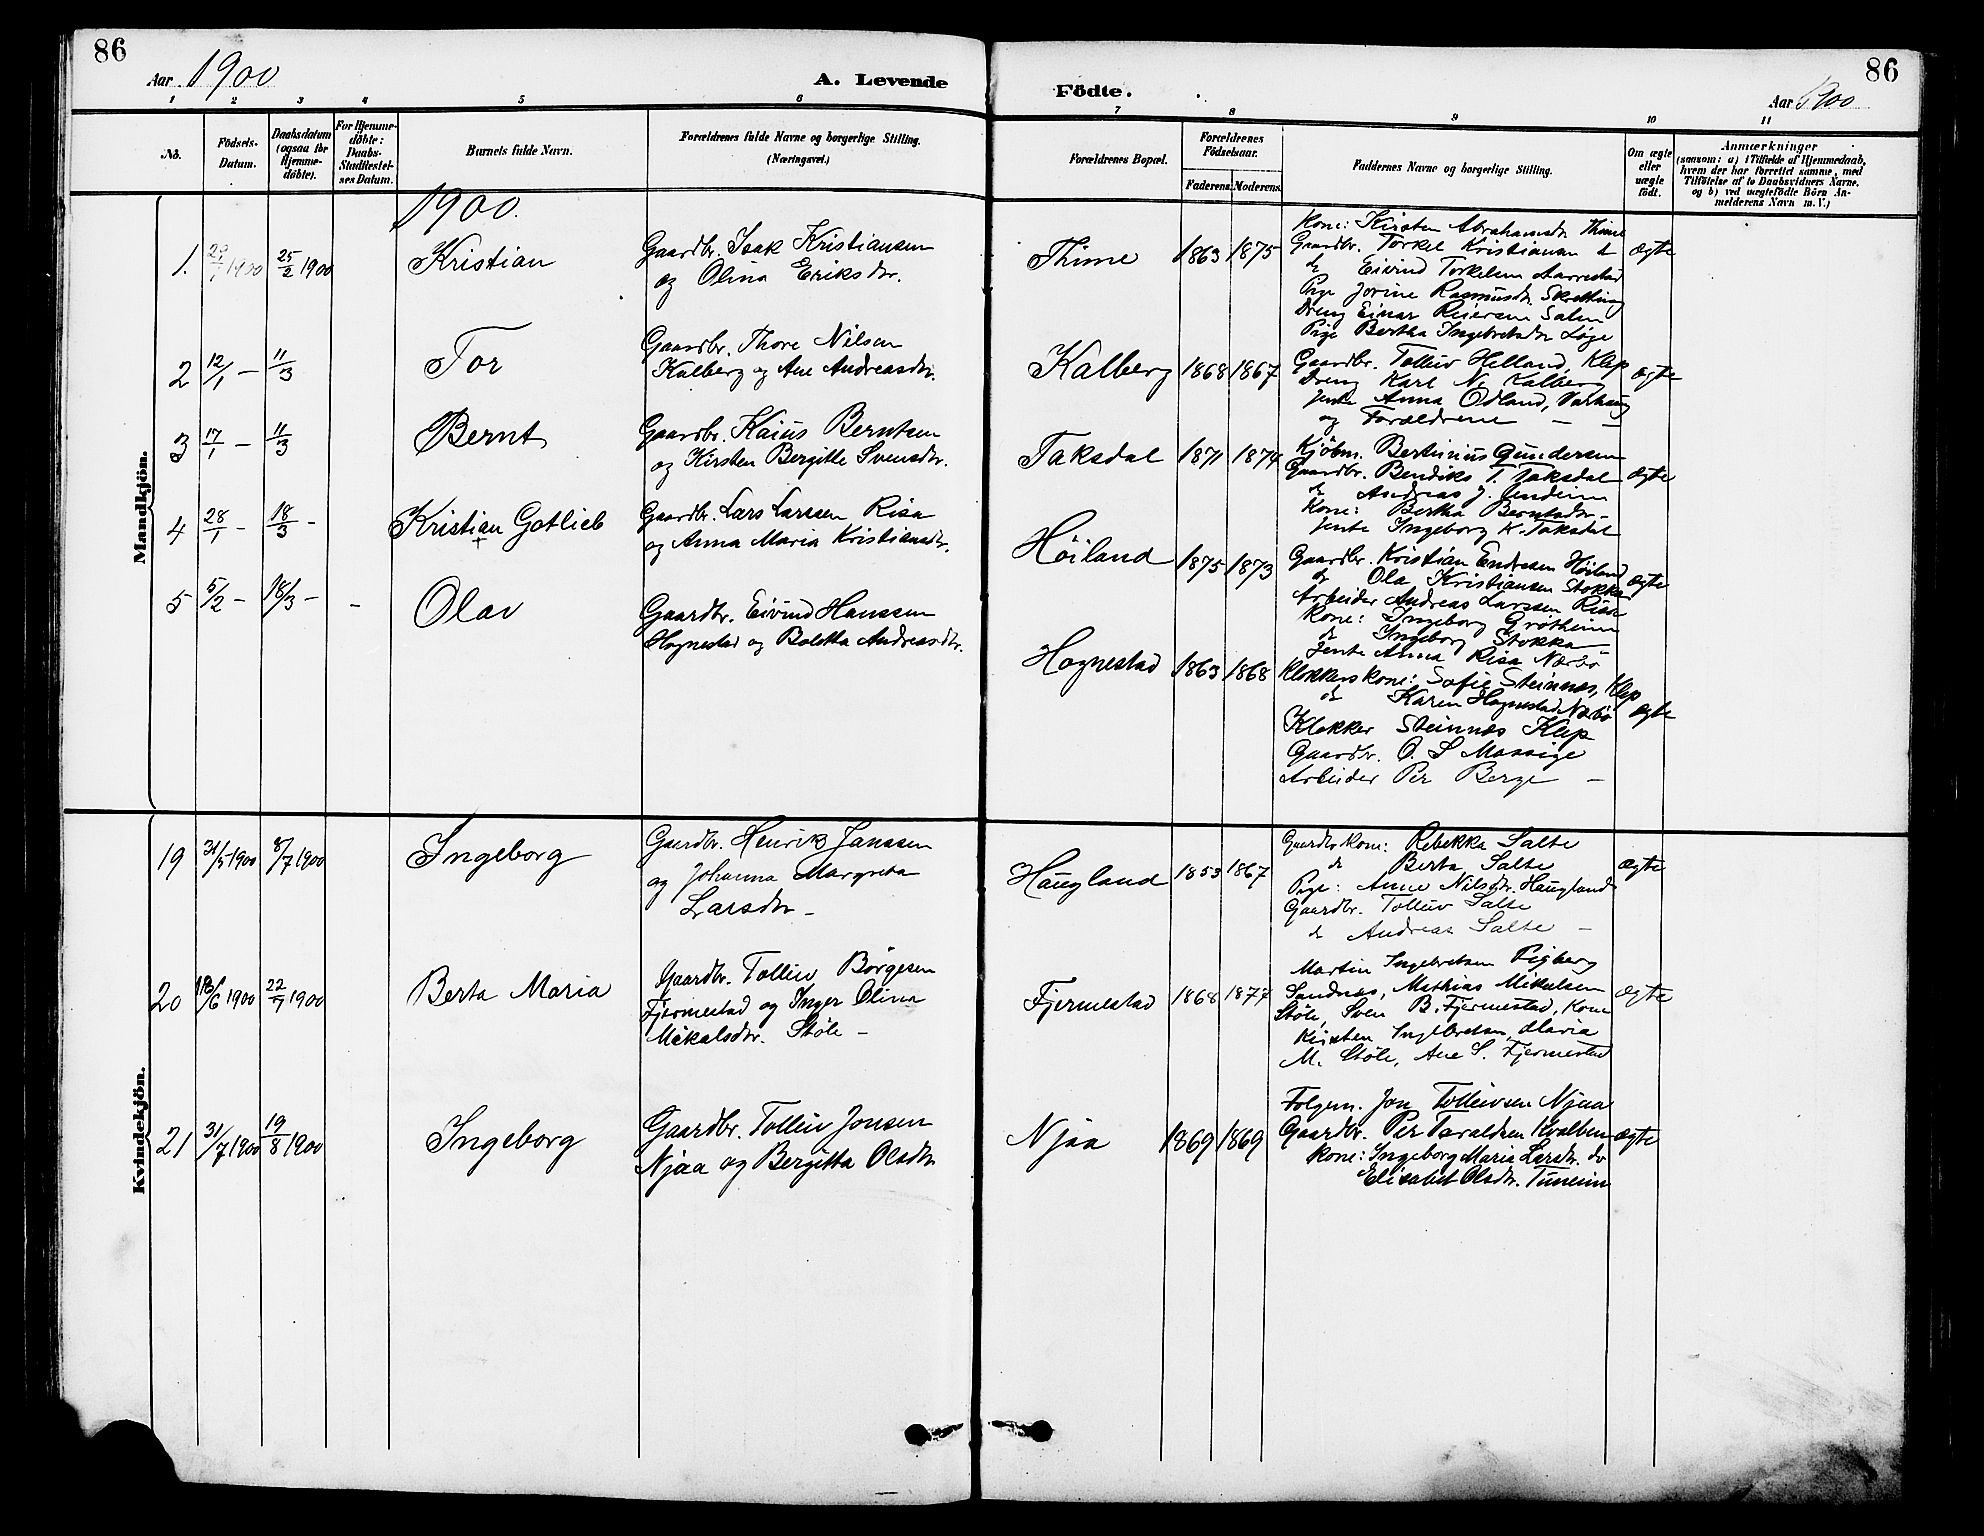 86
Aar 1900
A. Levende
Födte.
Aar 1900
86
1 2 3 4 5 6 7 8 9 10 11
No.
Födsels-
Datum.
Daabsdatum
(ogsaa for
Hjemme-
döbte).
For Hjemme-
döbte:
Daabs-
Stadfæstel-
ses Datum.
Barnets fulde Navn.
Forældrenes fulde Navne og borgerlige Stilling.
(Næringsvei.)
Forældrenes Bopæl.
Forældrenes
Födselsaar.
Faderens. Moderens.
Faddernes Navne og borgerlige Stilling.
Om ægte
eller
uægte
født.
Anmærkninger
(saasom: a) i Tilfælde af Hjemmedaab,
hvem der har forrettet samme, med
Tilföielse af to Daabsvidners Navne.
og b) ved uægtefödte Börn An-
melderens Navn m. V.)
Mandkjön.
1900.
1. 1900 25/2 1900
Kristian
Gaardbr. Isak Kristiansen
og Olina Eriksdr.
Thime
1863 1875
Kone: Kirsten Abrahamsdr Thime
Gaardbr. Torkel Kristiansen
Eivind Torkelsen Aarrestad
Pige Jorine Rasmusdr. Skretting
Dreng Einar Reiersen
Pige Bertha Ingebretsdr
ægte
2 12/1 – 11/3
Tor
Gaardbr. Thore Nilsen
Kalberg og Ane Andreasdr.
Kalberg
1868 1867
Gaardbr. Tolleiv Helland, Klep
Dreng Karl N. Kalberg
Jente Anna Odland, Varhaug
og Forældrene –
ægte
3 17/1 – 11/3
Bernt
Gaardbr. Kaius Berntsen
og Kirsten Bergitte Svensdr.
Taksdal
1871 1874
Kjøbm. Bertinius Gundersen
Gaardbr. Bendiks T. Taksdal
Andreas J.
Kone: Bertha Berntsdr –
Jente Ingeborg K. Taksdal
ægte
4 28/1 – 18/3 –
Kristian Gotlieb
+
Gaardbr. Lars Larssen Risa
og Anna Maria Kristiansdr.
Höiland
1875 1873
Gaardbr. Kristian Endresen Höiland
Ola Kristiansen Stokka
Arbeider Andreas Larssen Risa
Kone: Ingeborg Grötheim
Ingeborg Stokka –
Jente Anna Risa Nærbö
ægte
5 5/2 – 18/3 – –
Olav
Gaardbr. Eivind Hanssen
Hognestad og Boletta Andreasdtr.
Hognestad
1863 1868
Klokkerskone: Sofie Steinnes, Klep
Karen Hognestad Nærbö
Klokker Steinnes Klep
Gaardbr. O. S. Mossige
Arbeider Per Berge –
ægte
Kvindekjön.
19 31/5 1900 8/7 1900
Ingeborg
Gaardbr. Henrik Janssen
og Johanna Margreta
Larsdtr –
Haugland
1853 1867
Gaardbrkone: Rebekka Salte
Berta Salte
Pige: Anne Nilsdtr. Haugland
Gaardbr. Tolleiv Salte
Andreas Salte –
ægte
20 18/6 1900 22/7 1900
Berta Maria
Gaardbr. Tolleiv Børgesen
Fjermestad og Inger Olina
Mikalsdtr. Støle –
Fjermestad
1868 1877
Martin Ingebretsen
Sandnes, Mathias Mikalsen
Støle, Sven B. Fjermestad, Kone
Kirsten Ingebretsen, Maria
M. Støle, Ane S. Fjermestad
ægte
21 31/7 1900 19/8 1900
Ingeborg
Gaardbr. Tolleiv Jonsen
Njaa og Bergitta Olsdtr
Njaa
1869 1869
Folgem. Jon Tolleivsen Njaa
Gaardbr. Per Taraldsen Kvalbein
Kone: Ingeborg Maria Larsdtr. do
Elisabet Olsdtr. Tuneim
ægte